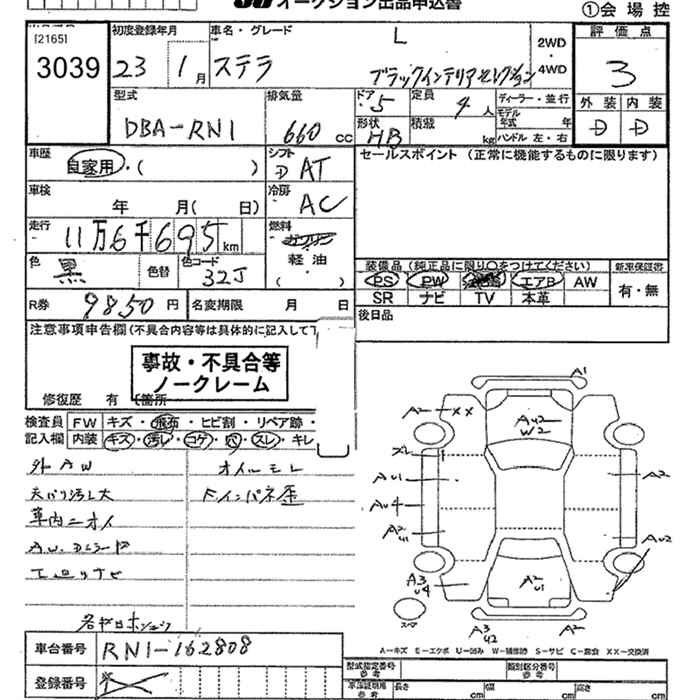 オークション出品申込書
①会場控
[2165]
3039
初度登録年月
23 1月
車名・グレード
L
ステラ
ブラックインテリアセレクション
2WD
・
4WD
評価点
3
外装 内装
D D
型式
DBA-RN1
排気量
660 cc
ドア・ 5
形状 HB
定員 4 人
積載 kg
ディーラー・並行
モデル年式 年
ハンドル 左・右
車歴
自家用・( )
シフト
D AT
セールスポイント (正常に機能するものに限ります)
車検
年 月( 日)
冷房
AC
走行
11万6千695km
燃料
ガソリン
軽油
( )
色
黒
色替
色コード
32J
装備品(純正品に限り○をつけてください)
新車保証書
PS PW エアB AW
SR ナビ TV 本革
有・無
R券 9850円
名変期限 月 日
後日品
注意事項申告欄(不具合内容等は具体的に記入して下
事故・不具合等
ノークレーム
修復歴 有 (箇所
検査員
記入欄
FW キズ・飛石・ヒビ割・リペア跡・
内装 キズ・汚レ・コゲ・穴・スレ・キレ
外AW
オイルモレ
天バリ汚レ大
Fインパネ歪
車内ニオイ
社外ナビ
A1
A2 XX
AU2
W2
AU1
A2
AU4
A2
U1
AU2
A3
U4
A2
U1
スペア
A3
U2
A2
A-キズ E-エクボ U-凹み W-補修跡 S-サビ C-腐食 XX-交換済
車台番号 RN1-162808
登録番号
型式指定番号
参考
類別区分番号
参考
車庫証明用
参考
長さ cm
幅 cm
高さ cm